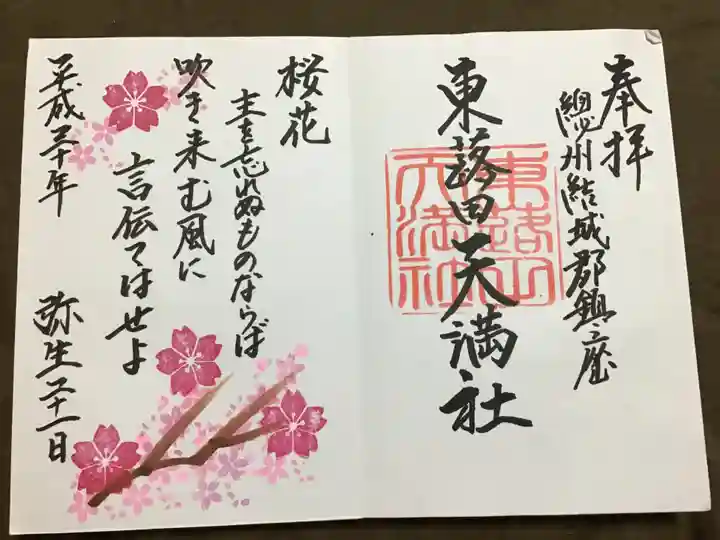 奉拝
總州結城郡鎮座
東蕗田天満社
桜花
主を忘れぬものならば
吹き来む風に
言伝てはせよ
平成三十年 弥生二十一日